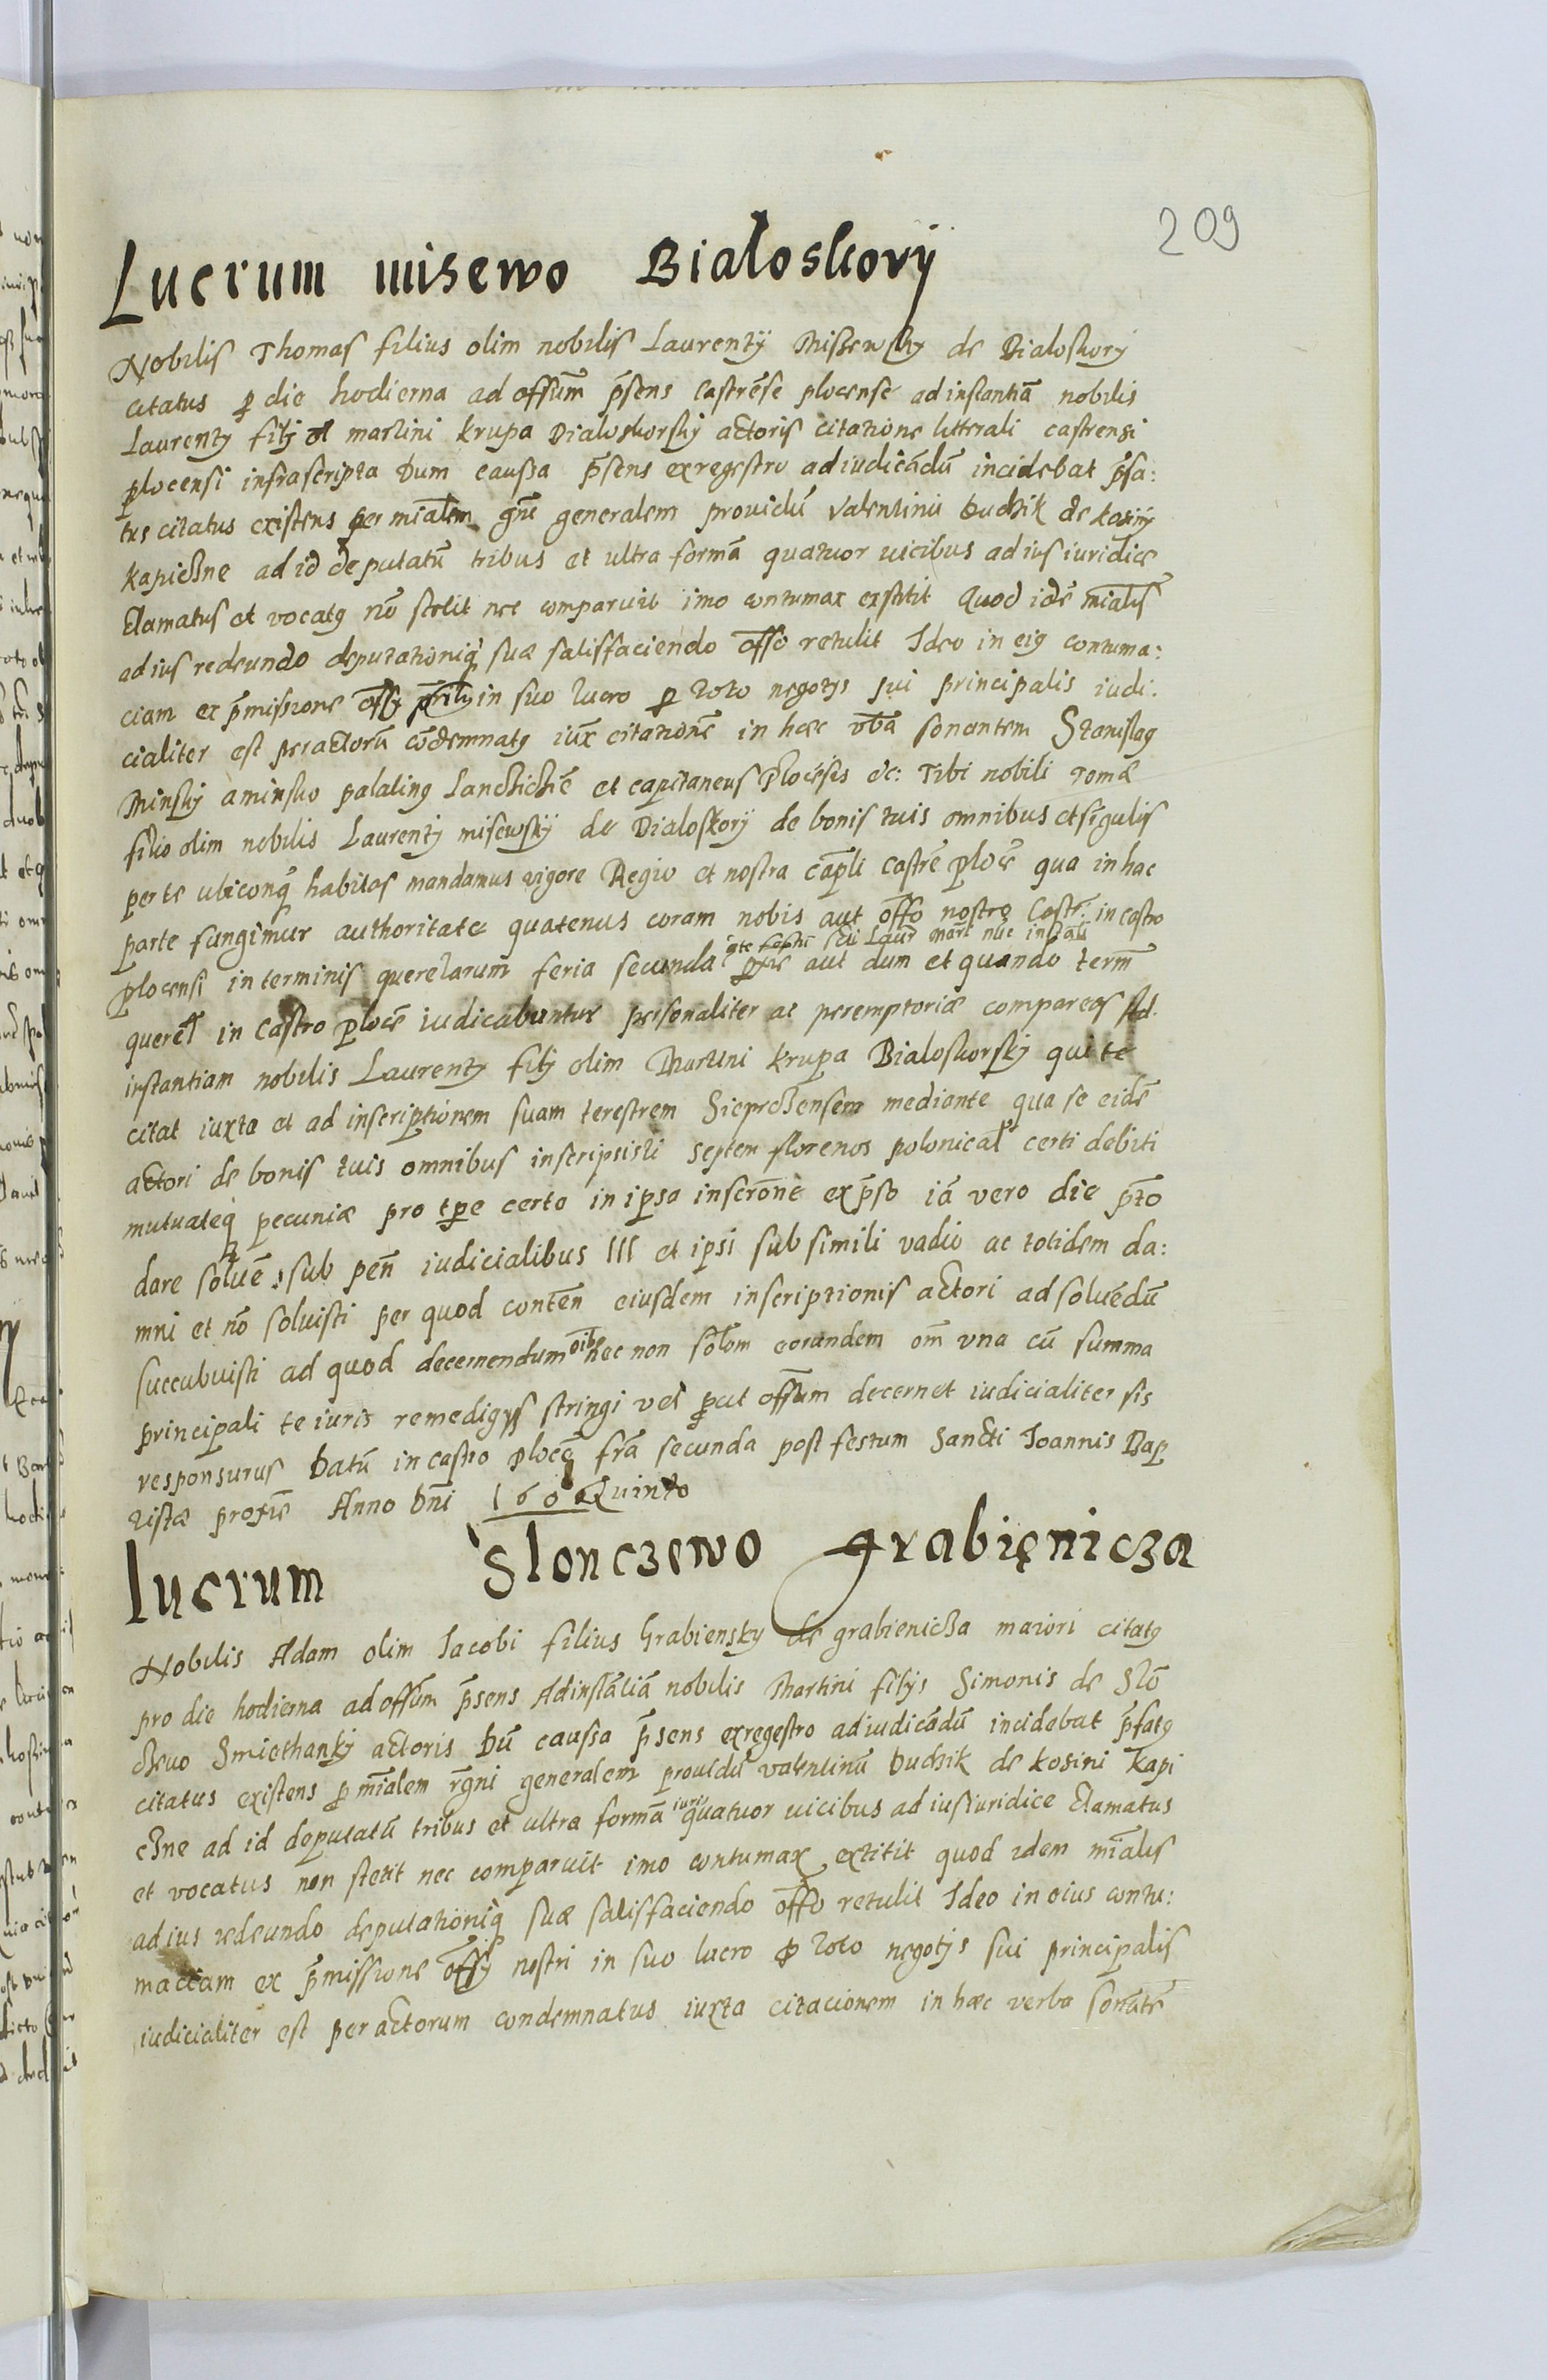 209
Lucrum misewo Bialoskory
Nobilis Thomas filius olim nobilis Laurentÿ Misßewsky de Bialoskory
citatus ꝑ die hodierna ad offũm p̃sens Castrẽse plocense ad instantiã nobilis
Laurentÿ filÿ ol martini Krupa Bialoskorskÿ actoris citatione litterali castrensi
plocensi infrascripta Dum caussa p̃sens ex regestro ad iudicãdũ incidebat p̃fa:
tus citatus existens per mialem generalem prouidũ Valentinũ Duchik de kosinÿ
kapiczne ad id deputatũ tribus et ultra formã quatuor uicibus ad ius iuridice
Clamatus et vocatꝰ nõ stetit nec comparuit imo contumax exstitit Quod idẽ mialis
ad ius redeundo deputationiq̃ suæ satisfaciendo offo retulit Ideo in eiꝰ contuma:
ciam ex p̃missione offÿ in suo lucro ꝑ toto negotÿs sui principalis iudi:
cialiter est per actorũ cõdemnatꝰ iux̃ citationẽ in hæc vba sonantem Stanislaꝰ
Minskÿ a minsko palatinꝰ Lanchichiẽ et capitaneus Plocẽsis &c: Tibi nobili Tomæ
filio olim nobilis Laurentÿ misewskÿ de Bialoskorÿ de bonis tuis omnibus et sĩgulis
per te ubiconq̃ habitas mandamus vigore Regio et nostra cap̃li Castrẽ plocẽ qua in hac
parte fungimur authoritate quatenus coram nobis aut offo nostro Castr: in castro
ate festũ Scti Laur Mart nũc instãti
plocensi in terminis querelarum feria secunda aut dum et quando term̃
querel in Castro plocẽ iudicabuntur personaliter ac peremptoriæ compareas Ad.
instantiam nobilis Laurentÿ filÿ olim Martini krupa Bialoskorskÿ qui te
citat iuxta et ad inscriptionem suam terestrem Sieprczensem mediante qua se eidẽ
actori de bonis tuis omnibus inscripsisti septem florenos polonical certi debiti
mutuateq̃ pecuniæ pro tꝑe certo in ipsa inscrõne exp̃so iã vero die p̃to
dare soluẽ sub pen̄ iudicialibus III et ipsi sub simili vadio ac totidem da:
mni et nõ soluisti per quod conten̄ eiusdem inscriptionis actori ad soluẽdũ
succubuisti ad quod decernendum oĩbꝰ nec non sõlom eorundem om̃ una cũ summa
principali te iuris remedigÿs stringi vel ꝓut offũm decernet iudicialiter sis
responsurus Datũ in castro plocẽ fr̃a secunda post festum Sancti Joannis Bap
tistæ proxiẽ Anno Dñi 160 Quinto
lucrum Slonczewo grabięnicza
Nobilis Adam olim Iacobi filius Grabiensky de grabienicza maiori citatꝰ
pro die hodierna ad offũm p̃sens Ad instãtiã nobilis Martini filÿs Simonis de Slõ
czewo Smiethankÿ actoris Dũ caussa p̃sens ex regestro ad iudicãdũ incidebat p̃fatꝰ
citatus existens ꝑ mialem rg̃ni generalem prouidũ valentinũ Duchik de kosini kapi
czne ad id deputatũ tribus et ultra formã iuris quatuor uicibus ad ius iuridice Clamatus
et vocatus non stetit nec comparuit imo contumax extitit quod idem mialis
ad ius redeundo deputationiq̃ suæ satisfaciendo offo retulit Ideo in eius contu:
maciam ex p̃missione offÿ nostri in suo lucro ꝑ toto negotÿs sui principalis
iudicialiter est per actorum condemnatus iuxta citacionem in hæc verba sonãtẽ